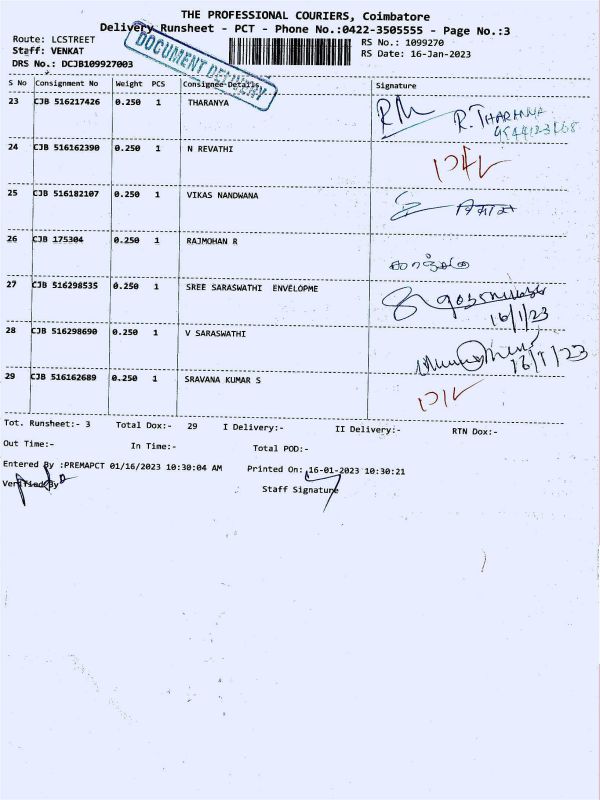 THE PROFESSIONAL COURIERS, Coimbatore
Delivery Runsheet - PCT - Phone No.:0422-3505555 - Page No.:3
Route: LCSTREET
RS No.: 1099270
Staff: VENKAT
RS Date: 16-Jan-2023
DRS No.: DCJB109927003
DOCUMENT DELIVERY
S No Consignment No Weight PCS Consignee Details Signature
23 CJB 516217426 0.250 1 THARANYA R. THARANYA
24 CJB 516162390 0.250 1 N REVATHI
25 CJB 516182107 0.250 1 VIKAS NANDWANA
26 CJB 175304 0.250 1 RAJMOHAN R
27 CJB 516298535 0.250 1 SREE SARASWATHI ENVELOPME
16/1/23
28 CJB 516298690 0.250 1 V SARASWATHI
16/1/23
29 CJB 516162689 0.250 1 SRAVANA KUMAR S
Tot. Runsheet:- 3 Total Dox:- 29 I Delivery:- II Delivery:- RTN Dox:-
Out Time:- In Time:- Total POD:-
Entered By :PREMAPCT 01/16/2023 10:30:04 AM Printed On: 16-01-2023 10:30:21
Verified By Staff Signature